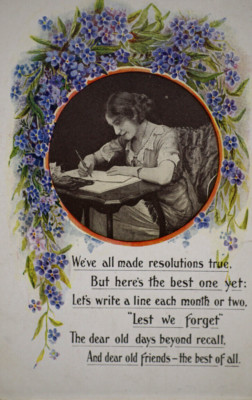 We've all made resolutions true,
But here's the best one yet:
Let's write a line each month or two,
"Lest we forget"
The dear old days beyond recall,
And dear old friends—the best of all.